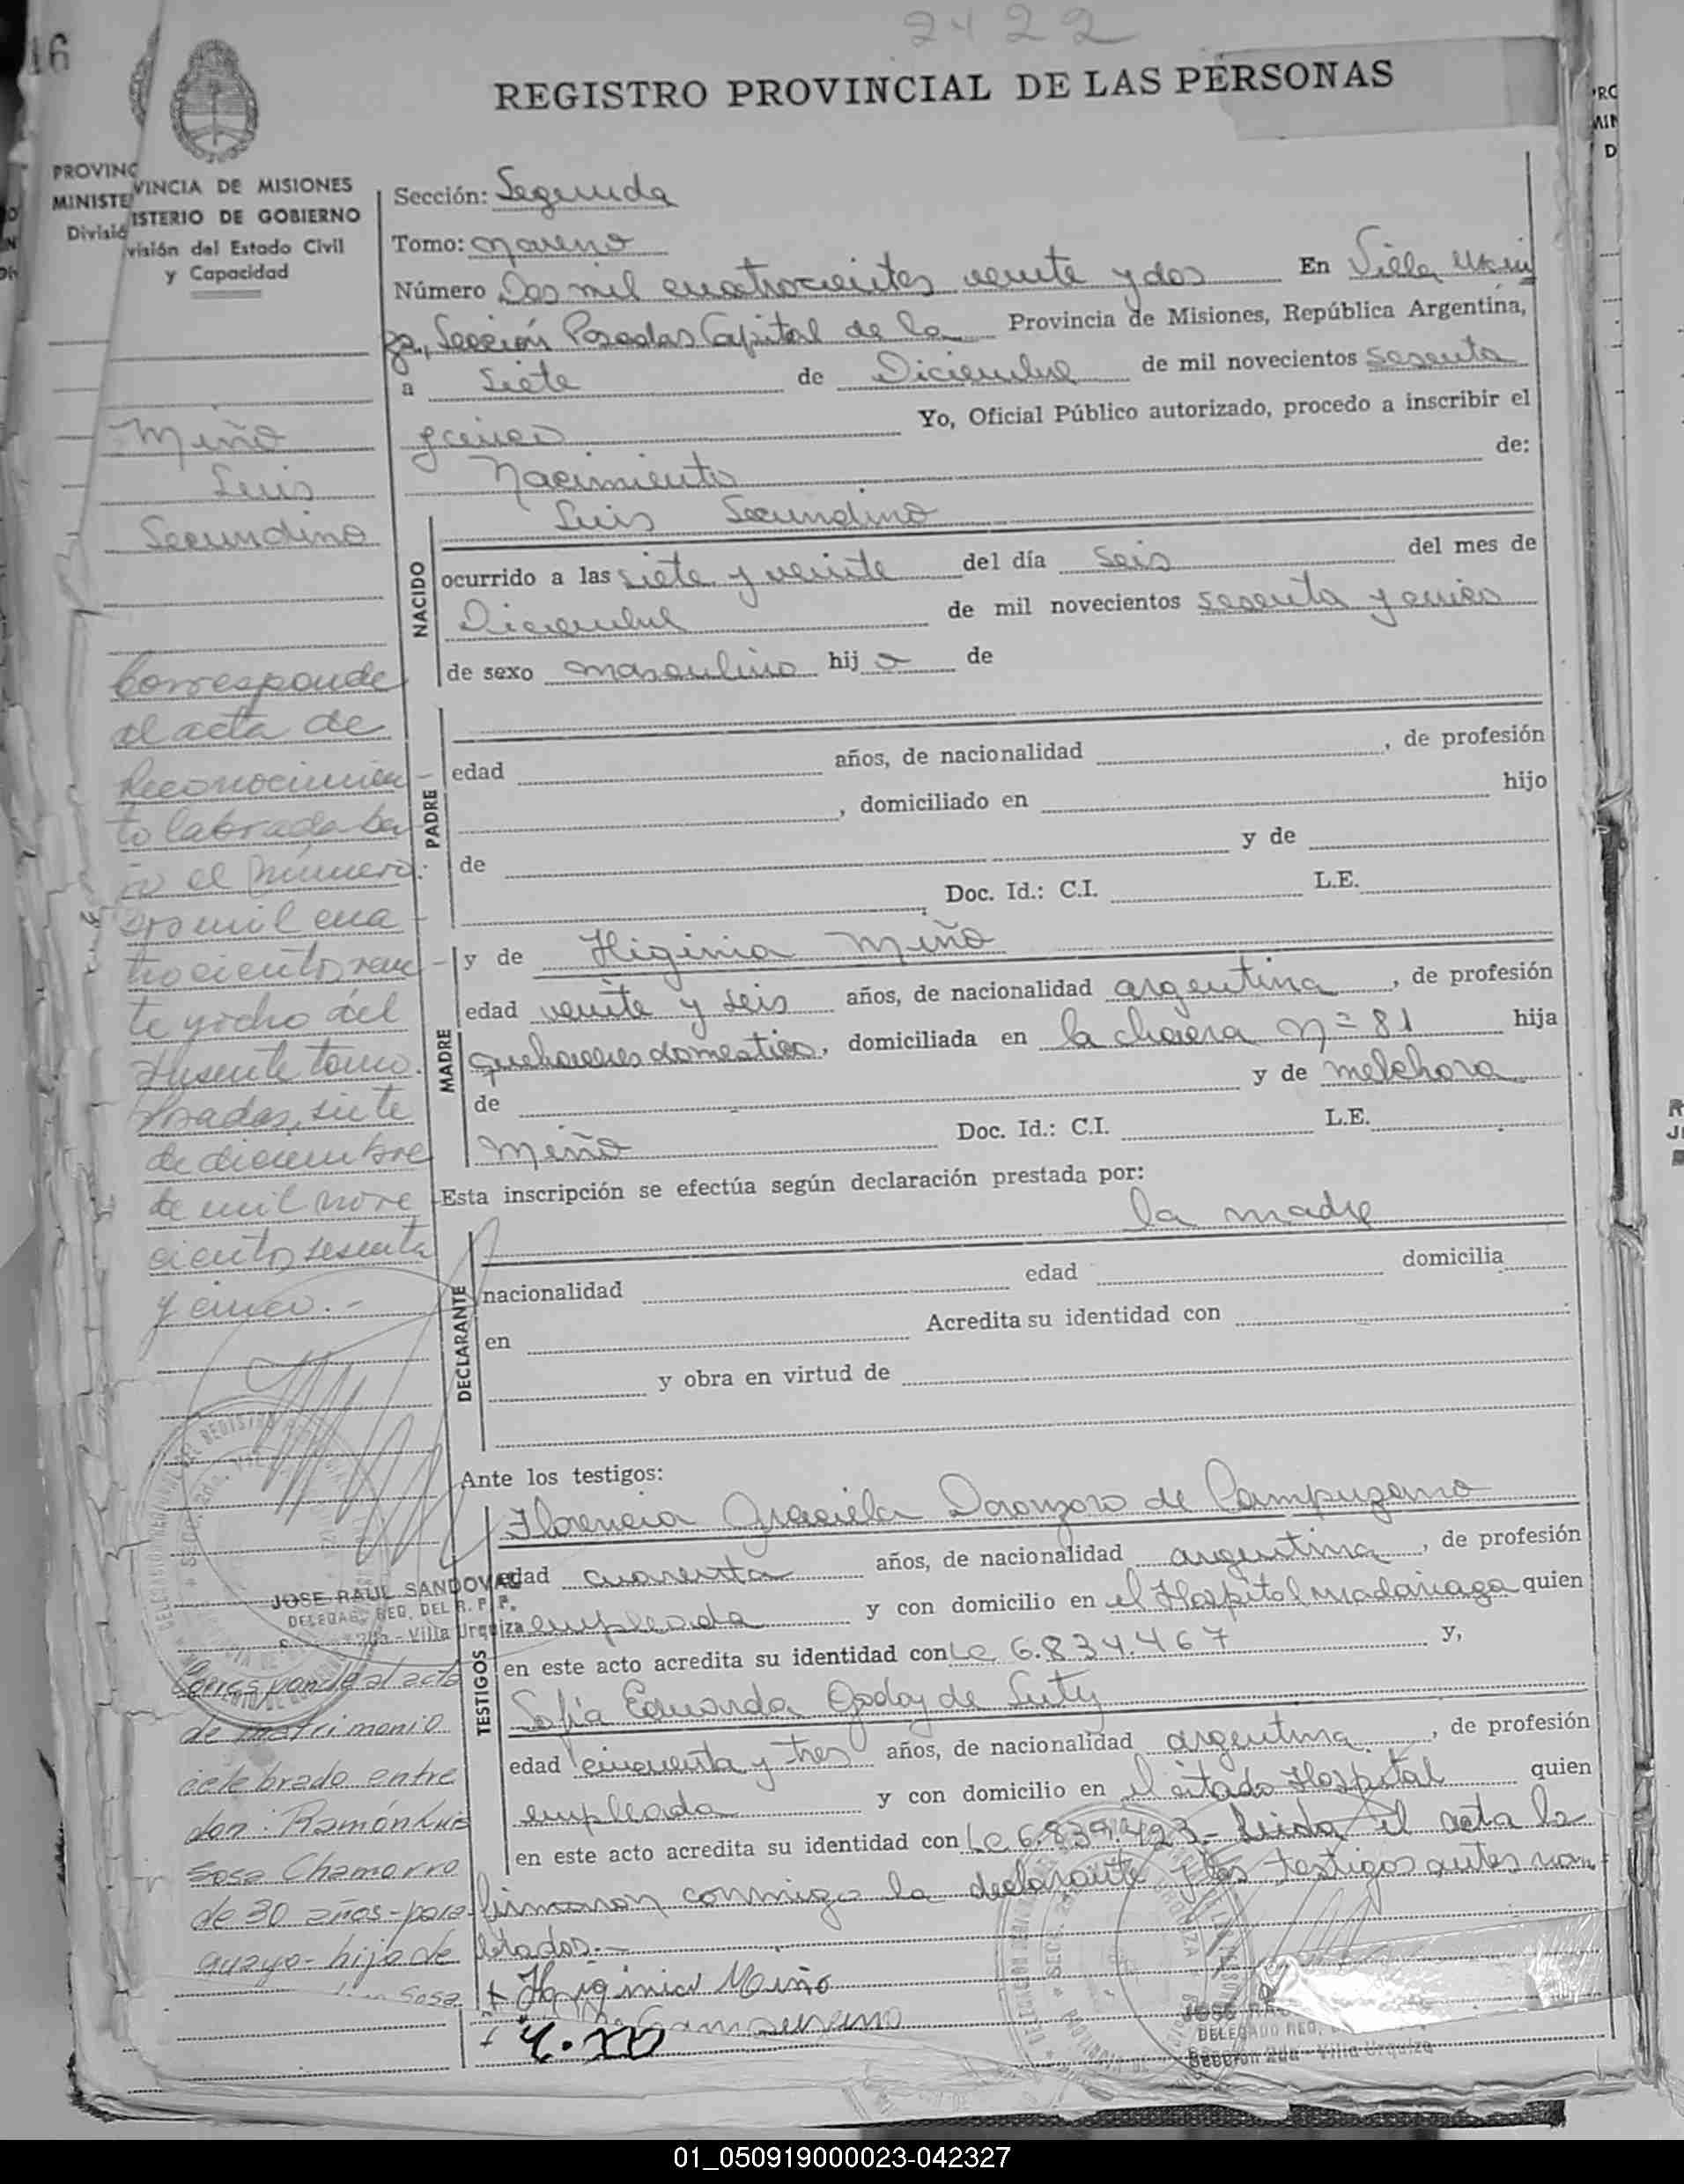 2422
16
REGISTRO PROVINCIAL DE LAS PERSONAS
PROVINC
MINISTE
Divisió
VINCIA DE MISIONES
ISTERIO DE GOBIERNO
visión del Estado Civil
y Capacidad
Miño
Luis
Secundino
Corresponde
al acta de
Reconocimien
to labrada ba
jo el número:
dos mil cua
trocientos vein
te y ocho del
presente tomo.
Posadas, siete
de diciembre
de mil nove
cientos sesenta
y cinco.-
JOSE RAUL SANDOVAL
DELEGADO REG. DEL R. P. P.
2da - Villa Urquiza
Corresponde al acta
de matrimonio
celebrado entre
don: Ramón Luis
Sosa Chamorro
de 30 años - para
guayo - hijo de
Sosa
Sección: Segunda
Tomo: noveno
Número Dos mil cuatrocientos veinte y dos En Villa Urqui
za, Sección Posadas Capital de la Provincia de Misiones, República Argentina,
a Siete de Diciembre de mil novecientos sesenta
y cinco Yo, Oficial Público autorizado, procedo a inscribir el
Nacimiento de:
NACIDO
Luis Secundino
ocurrido a las siete y veinte del día seis del mes de
Diciembre de mil novecientos sesenta y cinco
de sexo masculino hijo de
PADRE
edad años, de nacionalidad , de profesión
, domiciliado en hijo
de y de
Doc. Id.: C.I. L.E.
MADRE
y de Higinia Miño
edad veinte y seis años, de nacionalidad argentina, de profesión
quehaceres domestico, domiciliada en la chacra Nº 81 hija
de y de Melchora
Miño Doc. Id.: C.I. L.E.
Esta inscripción se efectúa según declaración prestada por:
la madre
DECLARANTE
nacionalidad edad domicilia
en Acredita su identidad con
y obra en virtud de
Ante los testigos:
TESTIGOS
Florencia Graciela de Campuzano
edad cuarenta años, de nacionalidad argentina, de profesión
empleada y con domicilio en el Hospital Madariaga quien
en este acto acredita su identidad con Lc 6.834.467 y,
Sofía Eduarda Godoy de
edad cincuenta y tres años, de nacionalidad argentina, de profesión
empleada y con domicilio en el citado Hospital quien
en este acto acredita su identidad con Lc 6.839.423.- Leida el acta la
firmaron conmigo la declarante y los testigos antes nom-
brados.-
+ Higinia Miño
JOSE RA
DELEGADO REG.
Sección 2da - Villa Urquiza
01_050919000023-042327